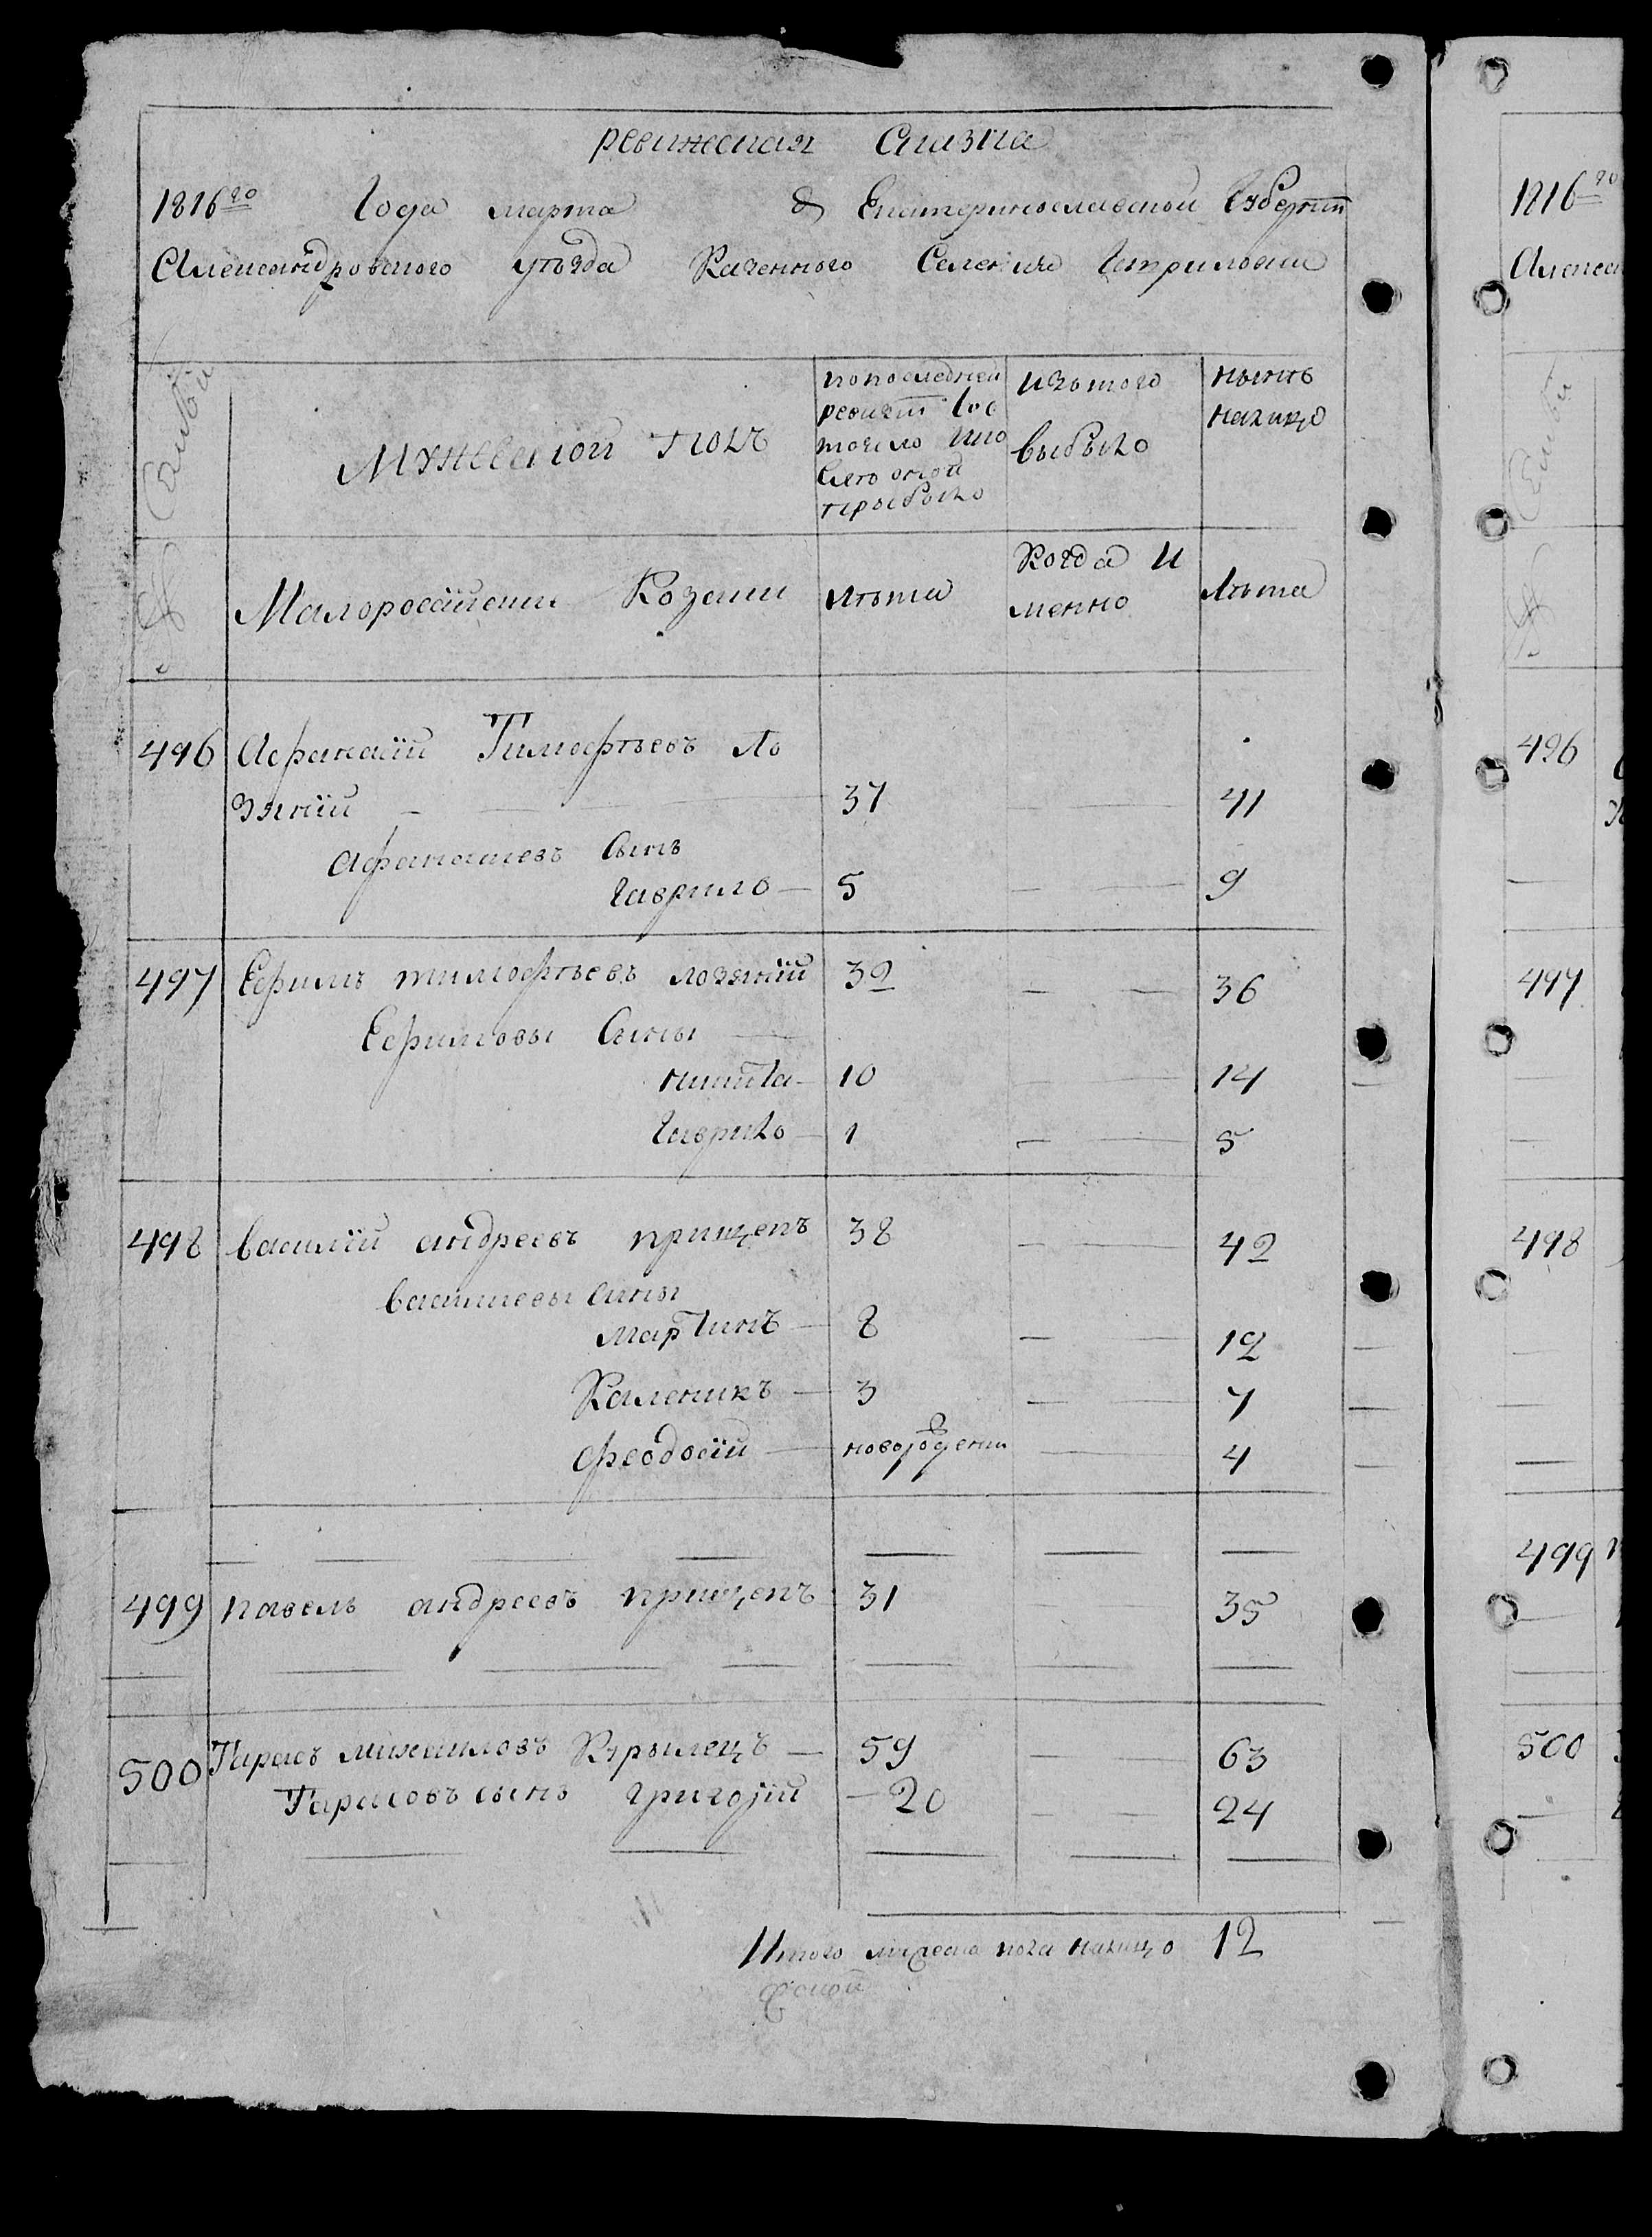 ревижская Сказка
1816го Года марта д Екатеринославской Губернїи
Александровского уѣзда Казенного Селения
Семьи
Мужеской полъ
по последней
ревизїи Со
тояло или
после оной
прыбыло
изътого
выбыло
нынѣ
налицо
№
Малоросаїйские Козаки
лѣта
Когда И
менно
Лѣта
496 Афанасїй Тимофѣевъ Ло
зянїй — 37 — — 41
Афанасиевъ Сынъ
Гаврило — 5 — — 9
497 Ефимъ тимофѣевъ лозянїй 32 — — 36
Ефимовы Сыны —
никита — 10 — — 14
Гаврило — 1 — — 5
498 василїй андреевъ прищепъ 38 — — 42
василиевы сыны
мартинъ — 8 — — 12
Каленикъ — 3 — — 7
феодосїй — новорожденн — 4
499 павелъ андреевъ прищепъ 31 35
500 Тарасъ михаиловъ Курылецъ — 59 — 63
Тарасовъ сынъ григорїй — 20 — — 24
Итого мужеска пола налицо 12
1816го
Алексан
Семьи
№
496
497
498
499
500